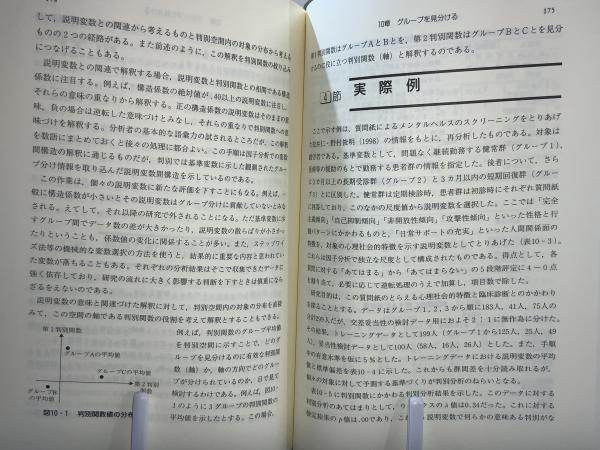 して，説明変数との関連から考えるものと判別空間内の対象の分布から考える
ものの2つの経路がある。また前述のように，この解釈を判別関数の絞り込み
につなげることもある。
説明変数との関連で解釈する場合，説明変数と判別関数との相関である構造
係数に注目する。例えば，構造係数の絶対値が.40以上の説明変数に注目し，
それらの意味の重なりから解釈する。正の構造係数の説明変数はそのままの意
味，負の場合は逆転した意味づけとみなし，それらの重なりで判別関数への意
味づけを解釈する。分析者の基本的な語彙力の試されるところだが，この解釈
を数語にまとめておくと後々の処理に都合よい。この手順は因子分析での重数
間構造の解釈に通じるものだが，判別では基準変数に示した観測されたグルー
プ分け情報を取り込んだ説明変数間構造を示しているのである。
この作業は，個々の説明変数に新たな評価を下すことにもなる。例えば，一
般に構造係数が小さいとその説明変数はグループ分けに貢献していないとみな
される。えてして，それ以降の研究で外されることになる。ただ基準変数に示
すグループ間でデータ数の差が大きかったり，説明変数の散らばりが小さかっ
たりということも，係数値の変化に関係することが多い。また，ステップワイ
ズ法等の機械的な変数選択の方法を使うと，結果的に重要な内容と思われてい
た変数が落ちることもある。それぞれの分析結果はそこで収集できたデータに
強く依存しており，研究の流れに大きく影響する判断を下すときは慎重になら
ざるをえないのである。
説明変数の意味と関連づけた解釈に対して，判別空間内の対象の分布を直接
みて，この空間の軸である判別関数の役割を考えて解釈とすることもできる。
例えば，判別関数のグループ平均
を判別空間に示すことで，どのグ
ループを見分けるのに有効な判別関
数（軸）か，軸の方向でどのグルー
プが分けられているのか，目で見て
検討するわけである。例えば，図10-
1のように3グループの判別関数の
平均値を示したとする。この場合，
第1判別関数
グループAの平均値
グループCの平均値
第2判別
関数
グループB
の平均値
図10-1 判別関数値の分布
175
10章 グループを見分ける
第1判別関数はグループAとBとを，第2判別関数はグループBとCとを見分
けるのに役に立つ判別関数（軸）と解釈するのである。
4節 実際例
ここで示す例は，質問紙によるメンタルヘルスのスクリーニングをとりあげ
(1998)の情報をもとに，再分析したものである。対象は
者である。基準変数として，問題なく継続勤務する健常群（グループ1），
療機の勧めもとで勤務する患者群の情報を指定した。後者について，さら
3カ月以内の短期回復群（グループ
3）とに区別した。健常群は定期検診時，患者群は初診時にそれぞれ質問紙
このなかの尺度値から説明変数を選択した。ここでは「完全
「自己抑制傾向」「非開放性傾向」「攻撃性傾向」といった性格と行
動パターンにかかわるものと，「日常サポートの充実」といった人間関係面の
，対象の心理社会的特徴を示す説明変数としてとりあげた（表10-3）。
これらは因子分析で独立な尺度として構成されたものである。得点として，各
質問に対する「あてはまる」から「あてはまらない」の5段階評定に4～0点
を割り当て，必要に応じて逆転処理のうえで加算し，項目数で除した。
研究目的は，この質問紙のとらえる心理社会的特徴と臨床診断とのかかわり
を探ることとする。データはグループ1，2，3から順に183人，41人，75人の
だが，交差妥当性の検討データ用におよそ2：1に無作為に分けた。
その結果，トレーニングデータとして199人（グループ1から125人，25人，49
人），妥当性検討データとして100人（58人，16人，26人）とした。また，手順
中の有意水準を仮に5％とした。トレーニングデータにおける説明変数の平均
値と標準偏差を表10-4に示した。これからも群間差を十分読み取れるが，
個々の対象に対して予測する基準づくりが判別分析のねらいとなる。
表10-5に判別関数にかかわる判別分析結果を示した。このデータに対する
判別分析のあてはまりとして，ウィルクスのλ値は0.34だった。これに対する
検定結果のp値は.00であり，これら説明変数で何らかの意味ある判別がな